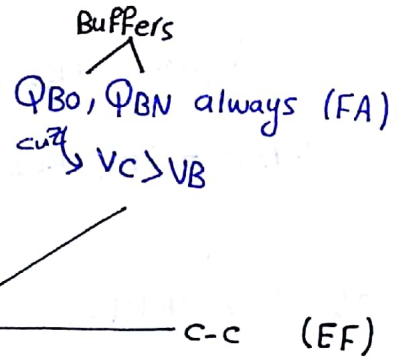 Buffers
QBO, QBN always (FA)
cuz VC>VB
C-C (EF)